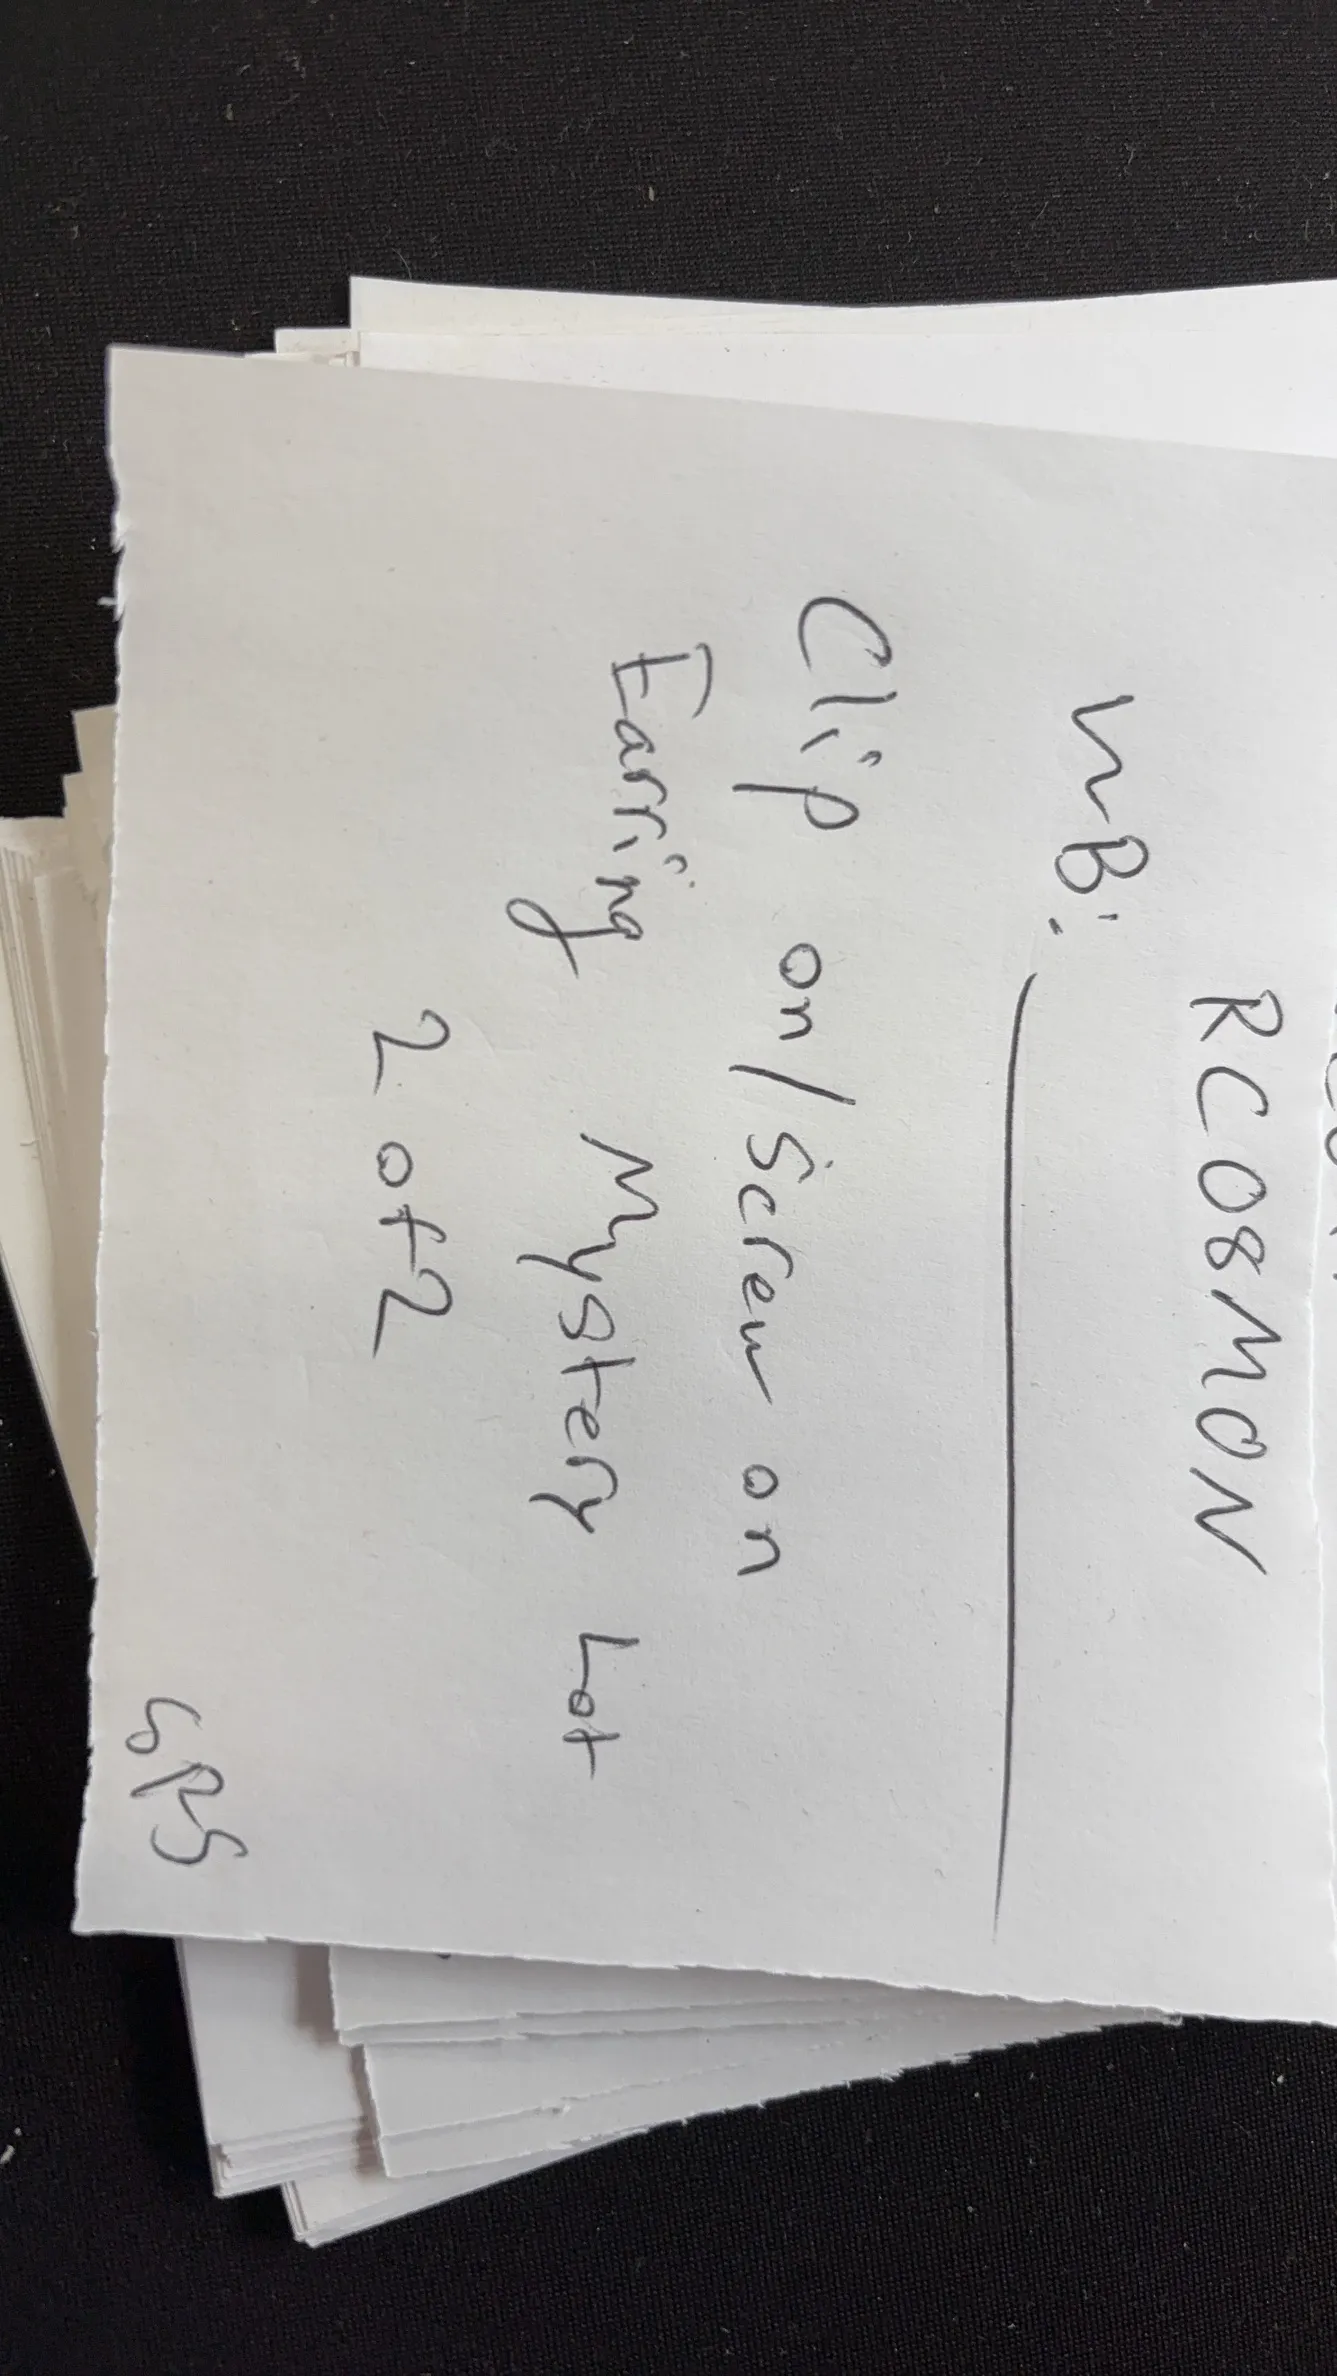 RC08MON
WB:
Clip on/Screw on
Earring Mystery Lot
2 of 2